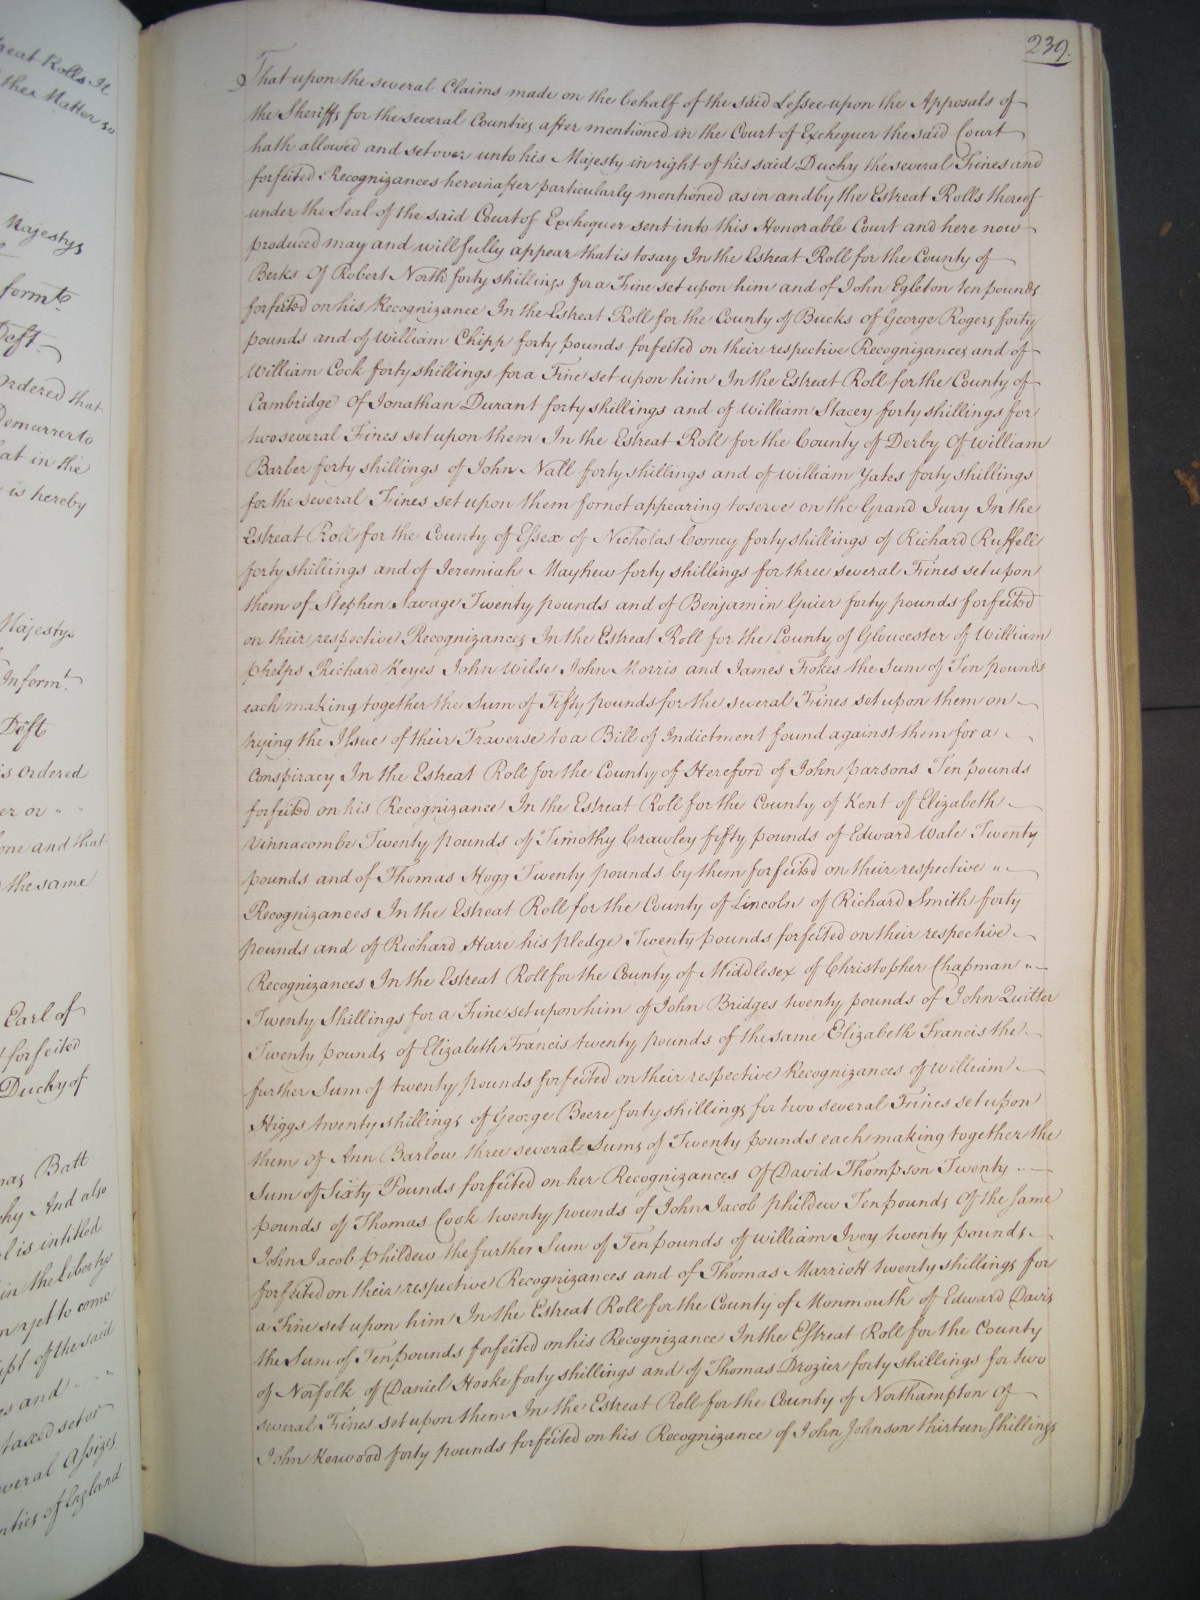 239.
That upon the several Claims made on the behalf of the said Lessee upon the Apposals of
the Sheriffs for the several Counties after mentioned in the Court of Exchequer the said Court
hath allowed and set over unto his Majesty in right of his said Duchy the several Fines and
forfeited Recognizances hereinafter particularly mentioned as in and by the Estreat Rolls thereof
under the Seal of the said Court of Exchequer sent into this Honorable Court and here now
produced may and will fully appear that is to say In the Estreat Roll for the County of
Berks Of Robert North forty shillings for a Fine set upon him and of John Egleton ten pounds
forfeited on his Recognizance In the Estreat Roll for the County of Bucks of George Rogers forty
pounds and of William Chipp forty pounds forfeited on their respective Recognizances and of
William Cock forty shillings for a Fine set upon him In the Estreat Roll for the County of
Cambridge Of Jonathan Durant forty shillings and of William Stacey forty shillings for
two several Fines set upon them In the Estreat Roll for the County of Derby Of William
Barber forty shillings of John Nall forty shillings and of William Yates forty shillings
for the several Fines set upon them for not appearing to serve on the Grand Jury In the
Estreat Roll for the County of Essex of Nicholas Corney forty shillings of Richard Ruffell
forty shillings and of Jeremiah Mayhew forty shillings for three several Fines set upon
them of Stephen Savage Twenty pounds and of Benjamin Guier forty pounds forfeited
on their respective Recognizances In the Estreat Roll for the County of Gloucester of William
Phelps Richard Keyes John Wilse John Morris and James Fokes the Sum of Ten pounds
each making together the Sum of Fifty pounds for the several Fines set upon them on
trying the Issue of their Traverse to a Bill of Indictment found against them for a
Conspiracy In the Estreat Roll for the County of Hereford of John Parsons Ten pounds
forfeited on his Recognizance In the Estreat Roll for the County of Kent of Elizabeth
Vinnacombe Twenty pounds of Timothy Crawley fifty pounds of Edward Wale Twenty
pounds and of Thomas Hogg Twenty pounds by them forfeited on their respective
Recognizances In the Estreat Roll for the County of Lincoln of Richard Smith forty
pounds and of Richard Hare his pledge Twenty pounds forfeited on their respective
Recognizances In the Estreat Roll for the County of Middlesex of Christopher Chapman
Twenty Shillings for a Fine set upon him of John Bridges twenty pounds of John Quitter
Twenty pounds of Elizabeth Francis twenty pounds of the same Elizabeth Francis the
further Sum of twenty pounds forfeited on their respective Recognizances of William
Higgs twenty shillings of George Beere forty shillings for two several Fines set upon
them of Ann Barlow three several Sums of Twenty pounds each making together the
Sum of Sixty Pounds forfeited on her Recognizances Of David Thompson Twenty
pounds of Thomas Cook twenty pounds of John Jacob Phildew Ten pounds Of the same
John Jacob Phildew the further Sum of Ten pounds of William Ivey twenty pounds
forfeited on their respective Recognizances and of Thomas Marriott twenty shillings for
a Fine set upon him In the Estreat Roll for the County of Monmouth of Edward Davis
the Sum of Ten pounds forfeited on his Recognizance In the Estreat Roll for the County
of Norfolk of Daniel Hooke forty shillings and of Thomas Drozier forty shillings for two
several Fines set upon them In the Estreat Roll for the County of Northampton of
John Kerwood forty pounds forfeited on his Recognizance of John Johnson thirteen Shillings
reat Rolls It
ther Matter so
Majestys
Deft
Ordered that
Demurrer to
at in the
is hereby
Majestys
Informt.
Deft
is ordered
er or
one and that
the same
Earl of
forfeited
Duchy of
Batt
And also
is intitled
in the Liberty
yet to come
of the said
and
taxed set or
several Assizes
of England